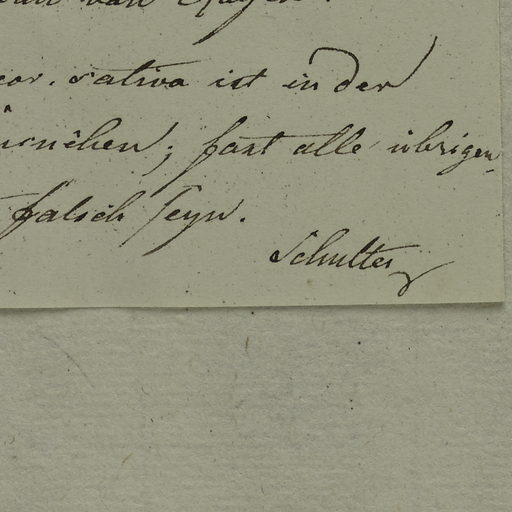 van
var. sativa ist in der
München; fast alle übrigen
falsch seyn.
Schultes